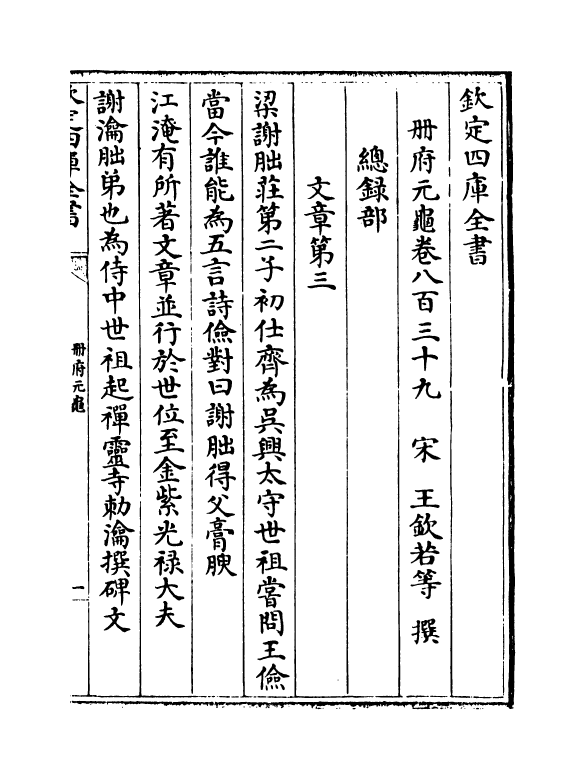 欽定四庫全書
冊府元龜卷八百三十九　宋　王欽若等　撰
總錄部
文章第三
梁謝朏莊第二子初仕齊為吳興太守世祖嘗問王儉
當今誰能為五言詩儉對曰謝朏得父膏腴
江淹有所著文章並行於世位至金紫光祿大夫
謝瀹朏弟也為侍中世祖起禪靈寺勅瀹撰碑文
欽定四庫全書
冊府元龜
一